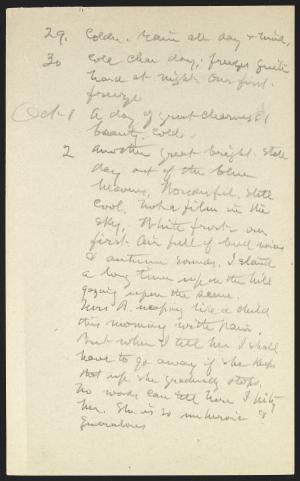 29. Colder. Rain all day & wind,
30 Cold clear day; freeze quite
hard at night. Our first
freeze
Oct. 1 A day of great clearness &
beauty. Cold.
2 Another great bright still
day out of the blue
heavens. Wonderful, still
cool, not a film in the
sky; White frost - our
first. Air full of
& autumn sounds. I stand
a long time upon the hill
gazing upon the scene.
Mrs B. weeping like a child
this morning with pain.
But when I tell her I shall
have to go away if she keeps
that up she gradually stops.
No words can tell how I pity
her. She is so unheroic &
querulous